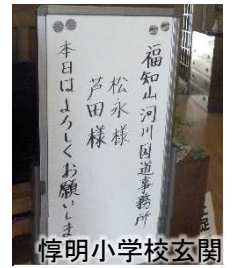 福知山河川国道事務所
松永様
芦田様
本日はよろしくお願いしま
惇明小学校玄関